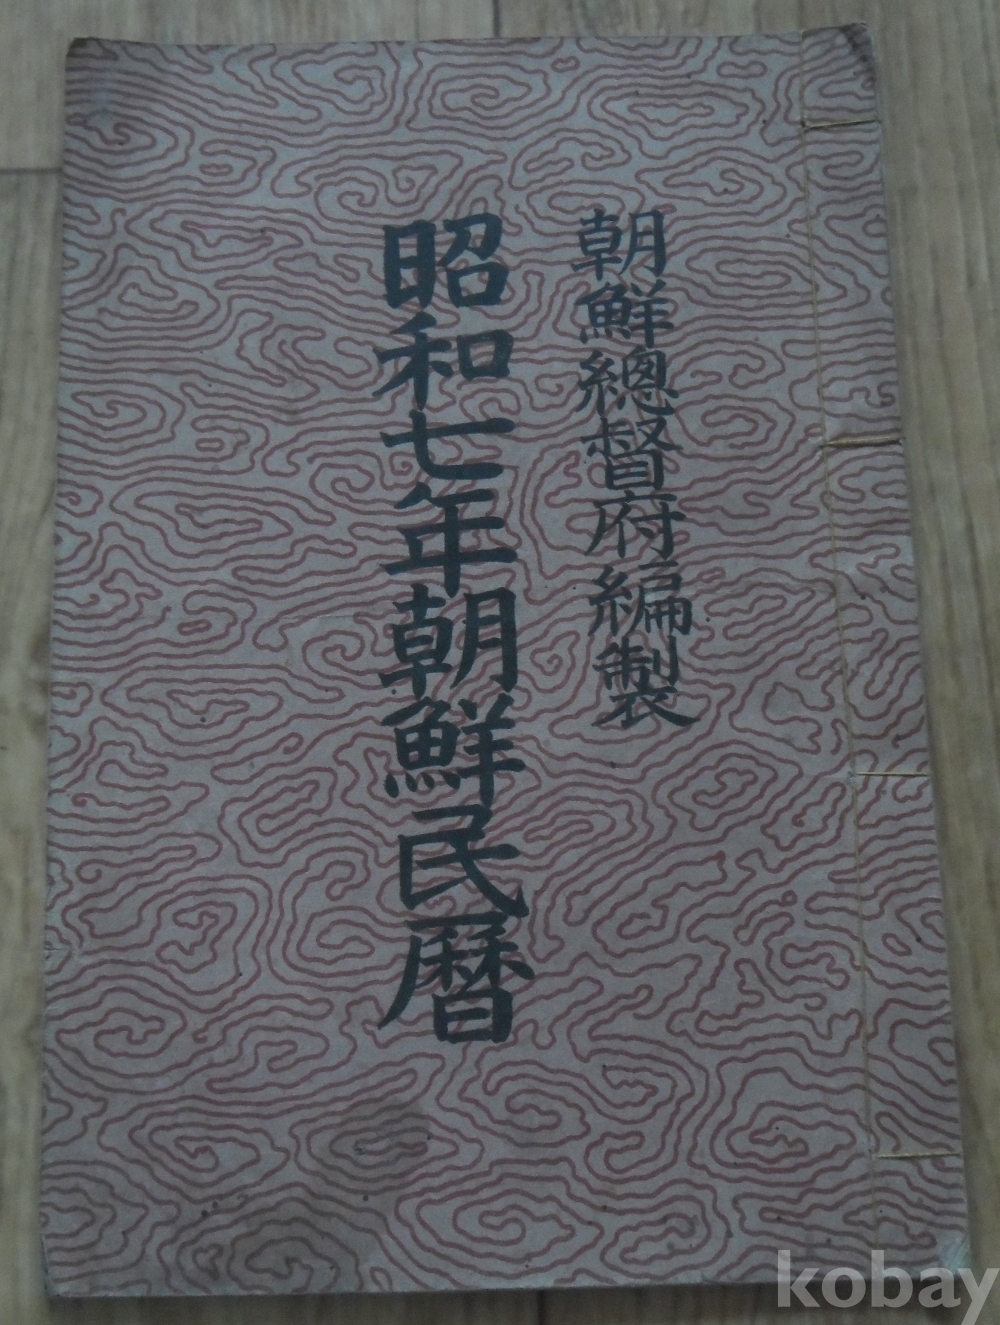 朝鮮總督府編製
昭和七年朝鮮民曆
kobay